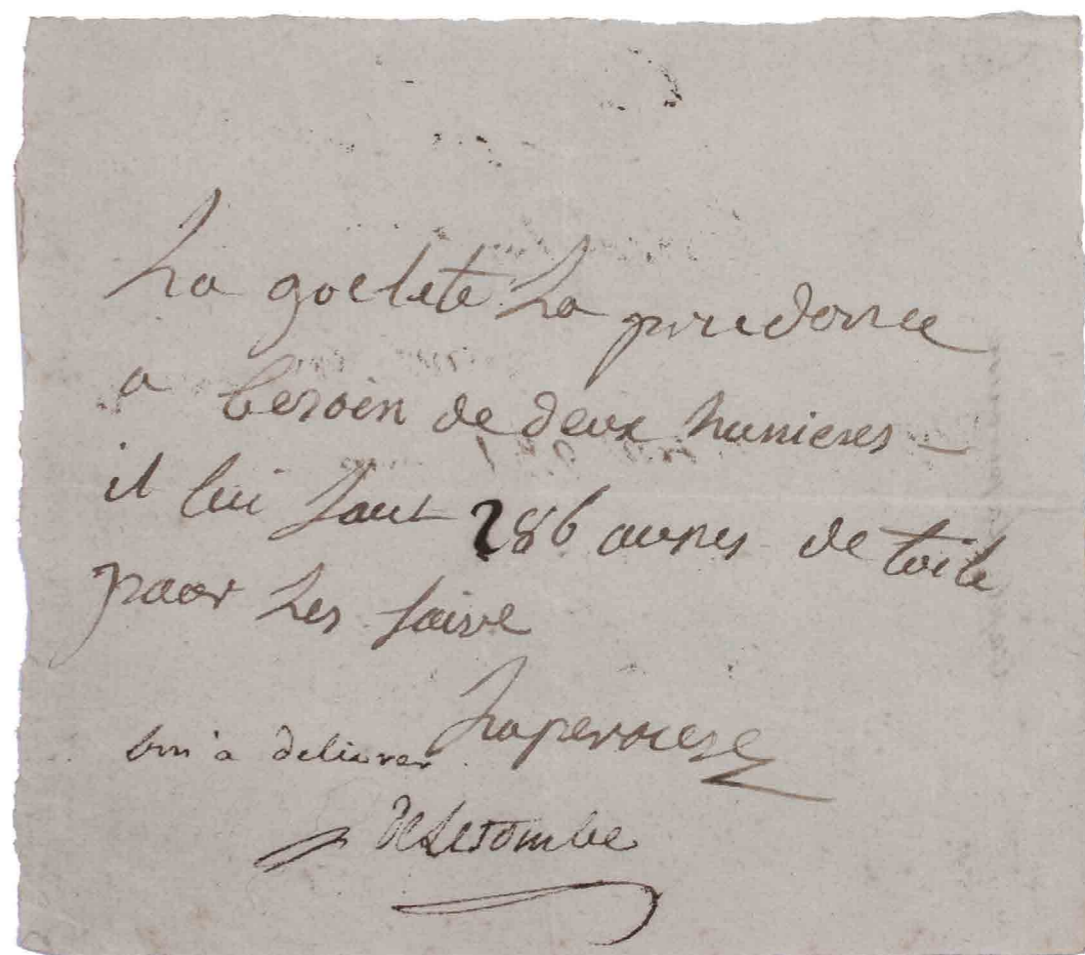 La goelete La prudence
a besoin de deux huniers –
il lui faut 286 aunes de toile
pour Les faire
Laperouse
bon à delivrer
DeLetombe